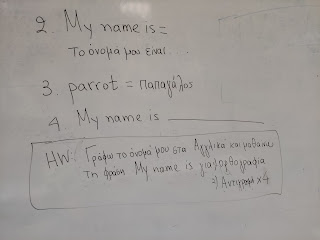 2. My name is =
Το όνομα μου είναι...
3. parrot = παπαγάλος
4. My name is
HW: Γράφω το όνομά μου στα Αγγλικά και μαθαίνω
τη φράση My name is για ορθογραφία
⇒ Αντιγραφή x 4